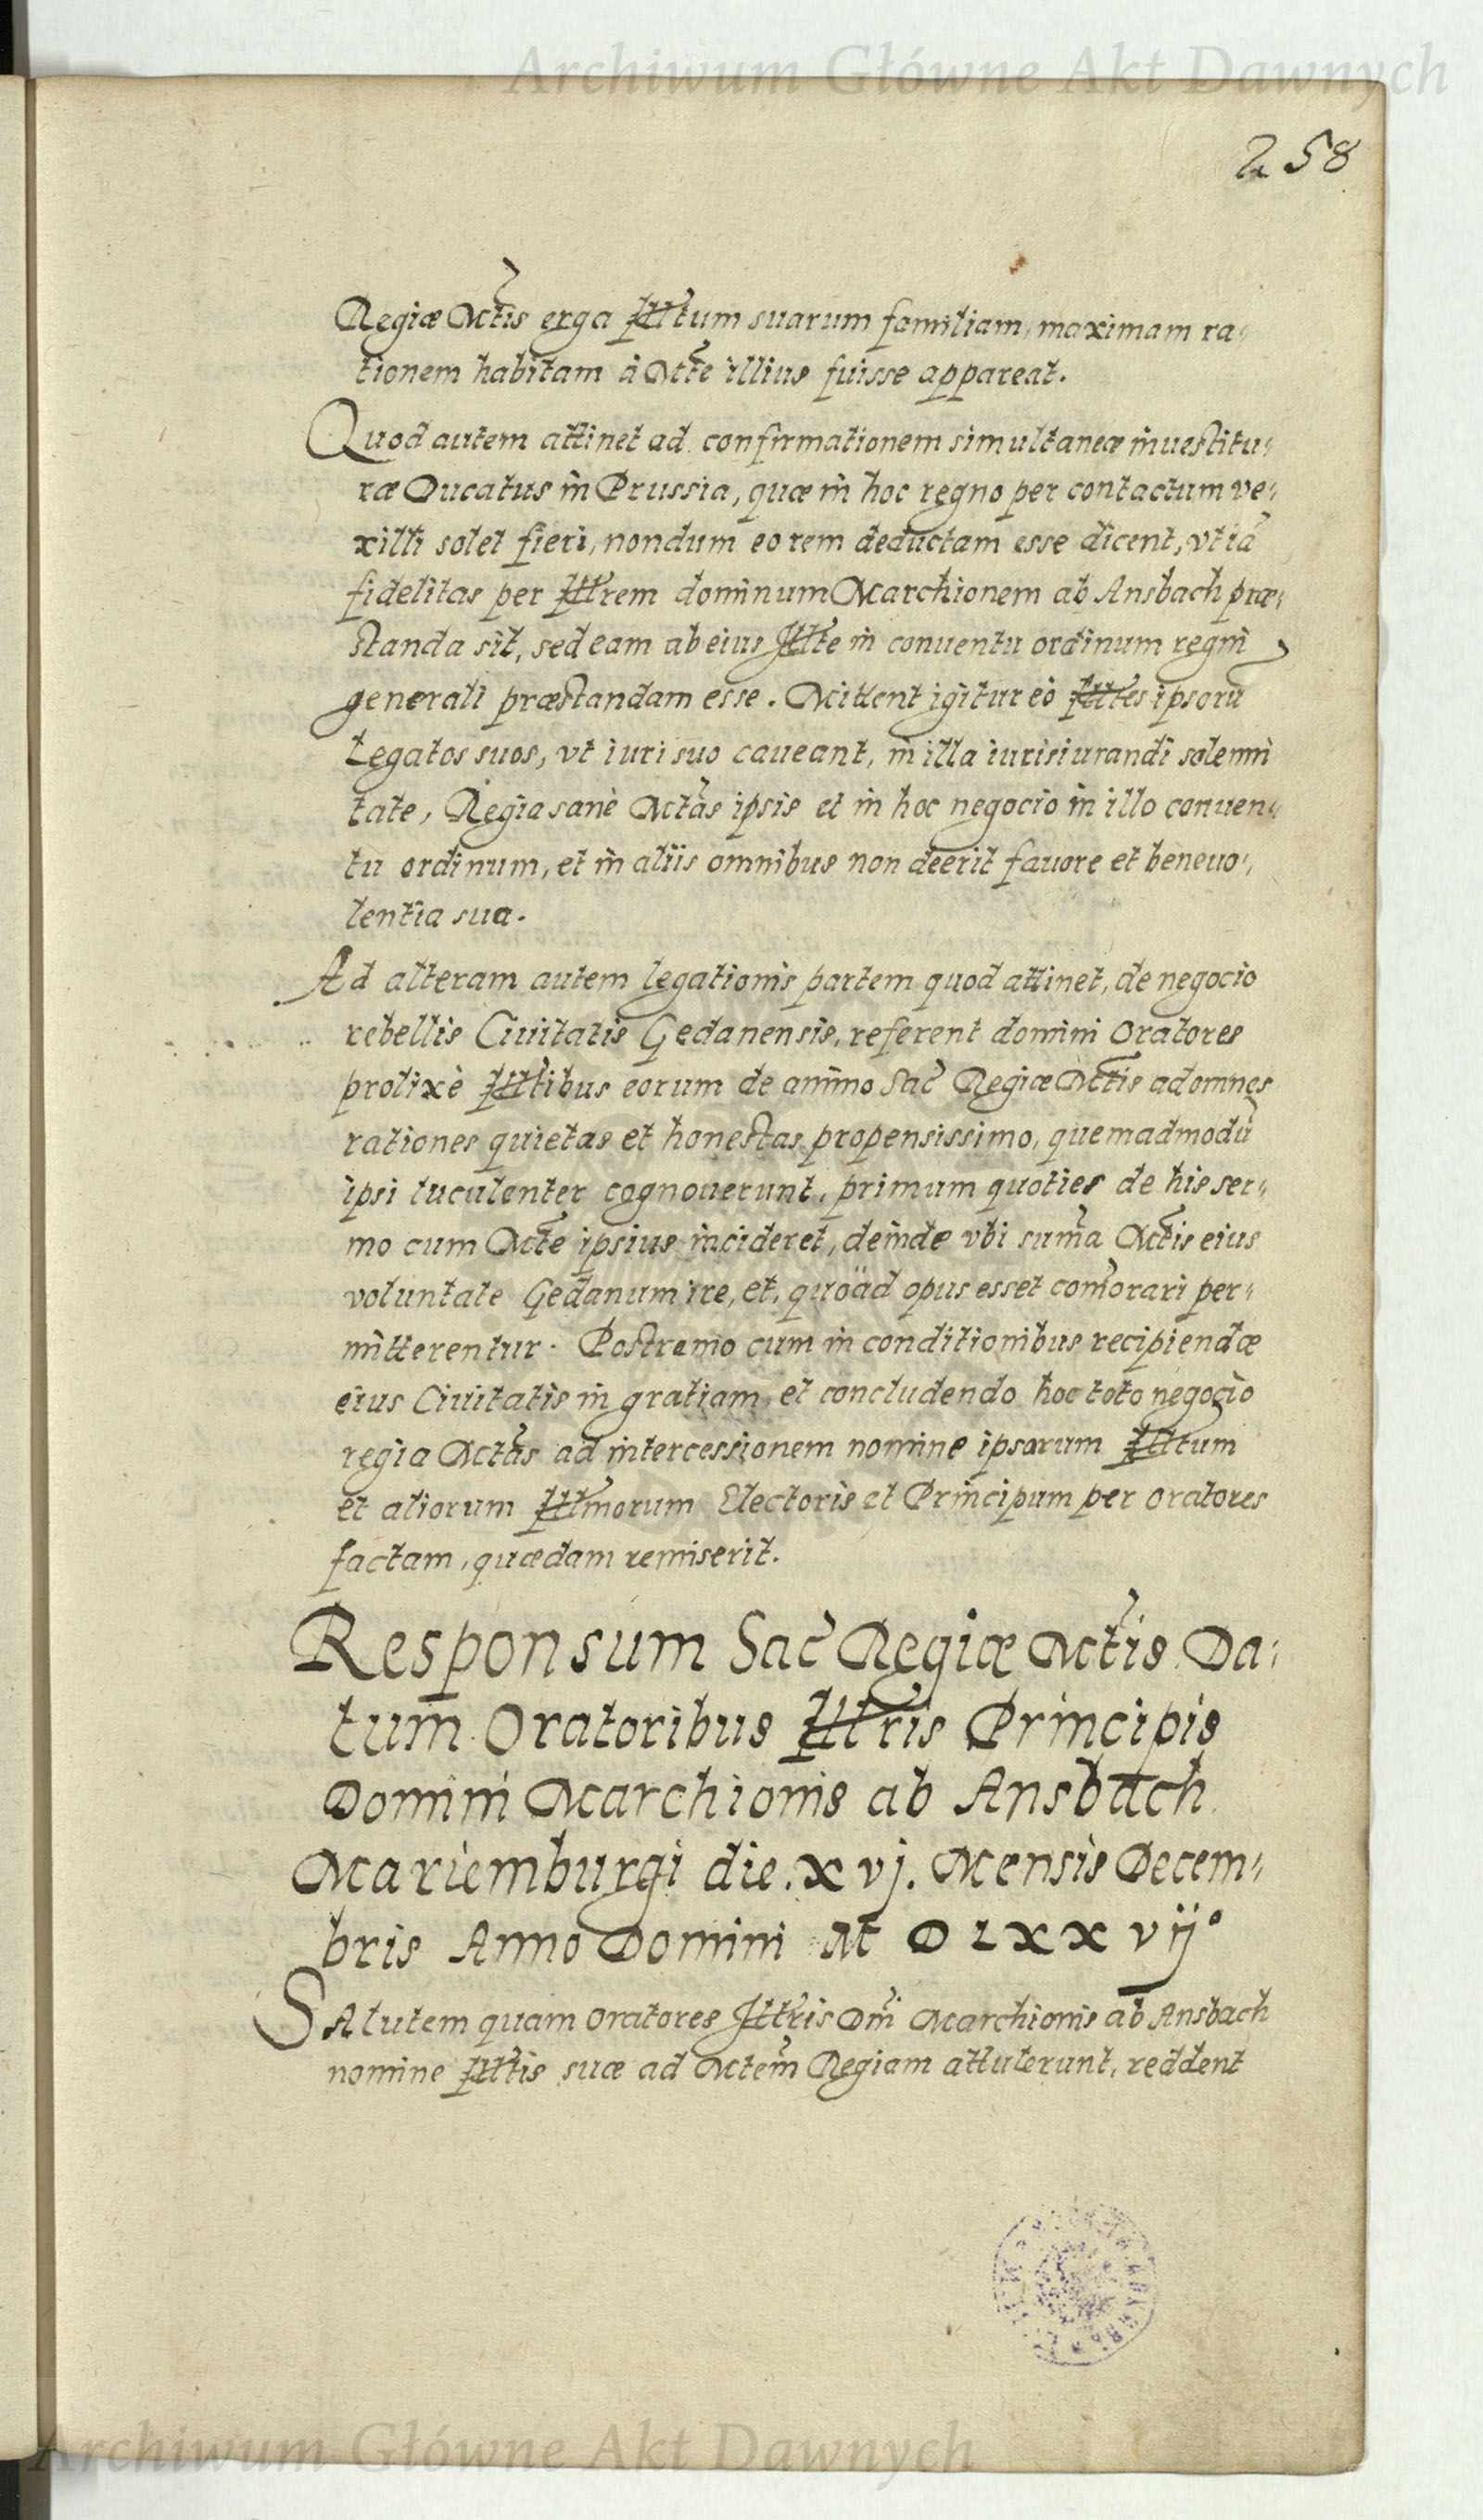 Archiwum Główne Akt Dawnych
258
Regiæ Mctis erga Illtum suarum familiam, maximam ra-
tionem habitam à Mtte illius fuisse appareat.
Quod autem attinet ad confirmationem simultaneæ inuestitu-
ræ Ducatus in Prussia, quæ in hoc regno per contactum ve-
xilli solet fieri, nondum eo rem deductam esse dicent, vt iã
fidelitas per Illrem dominum Marchionem ab Ansbach præ-
standa sit, sed eam ab eius Illte in conuentu ordinum regni
generali præstandam esse. Mittent igitur eò Illtes ipsorũ
Legatos suos, vt iuri suo caueant, in illa iurisiurandi solemni
tate, Regia sanè Mctas ipsis et in hoc negocio in illo conuen-
tu ordinum, et in aliis omnibus non deerit fauore et beneuo-
lentia sua.
Ad alteram autem legationis partem quod attinet, de negocio
rebellis Ciuitatis Gedanensis, referent domini Oratores
prolixè Illtibus eorum de animo Sac Regiæ Mctis ad omnes
rationes quietas et honestas propensissimo, quemadmodũ
ipsi luculenter cognouerunt, primum quoties de his ser-
mo cum Mcte ipsius incideret, deinde vbi suma Mctis eius
voluntate Gedanum ire, et, quöad opus esset comorari per-
mitterentur. Postremo cum in conditionibus recipiendæ
eius Ciuitatis in gratiam, et concludendo hoc toto negocio
regia Mctas ad intercessionem nomine ipsorum Illtum
et aliorum Illmorum Electoris et Principum per oratores
factam, quædam remiserit.
Responsum Sac Regiæ Mctis Da-
tum Oratoribus Illris Principis
Domini Marchionis ab Ansbach
Mariemburgi die. xvj. Mensis Decem-
bris Anno Domini M D L X X vij°
SAlutem quam Oratores Illris Dni Marchionis ab Ansbach
nomine Illtis suæ ad Mctem Regiam attulerunt, reddent
Archiwum Główne Akt Dawnych